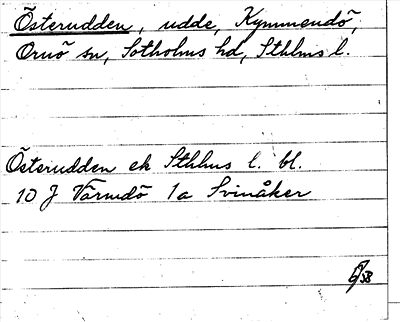 Österudden, udde, Kymmendö,
Ornö sn, Sotholms hd, Sthlms l.
Österudden ek Sthlms l. bl.
10 J Värmdö 1a Svinåker